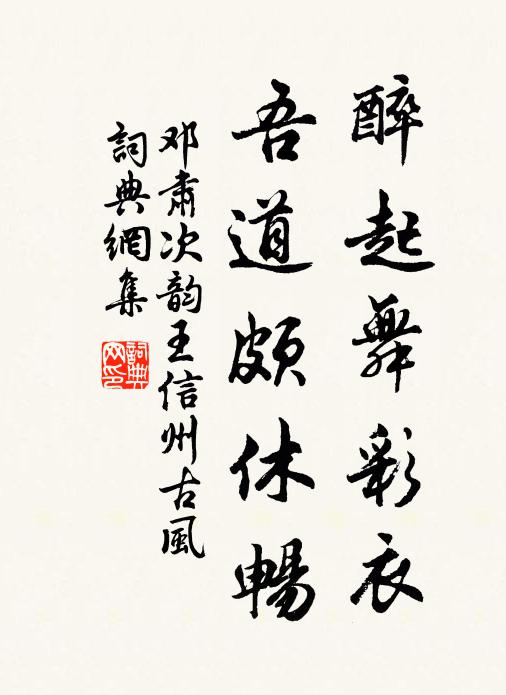 醉起舞彩衣
吾道頗休暢
邓肃次韵王信州古風
詞典網集
詞典网印